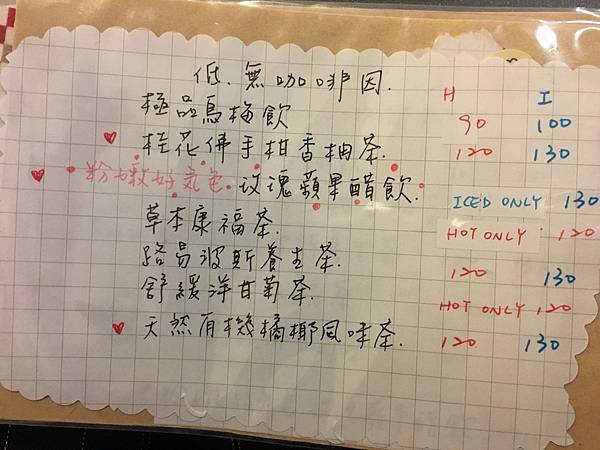 低.無咖啡因. H I
極品烏梅飲 90 100
桂花佛手柑香柚茶. 120 130
粉嫩好気色.玫瑰蘋果醋飲. ICED ONLY 130
草本康福茶. HOT ONLY 120
路易波斯養生茶. 120 130
舒緩洋甘菊茶. HOT ONLY 120
天然有機橘椰風味茶. 120 130